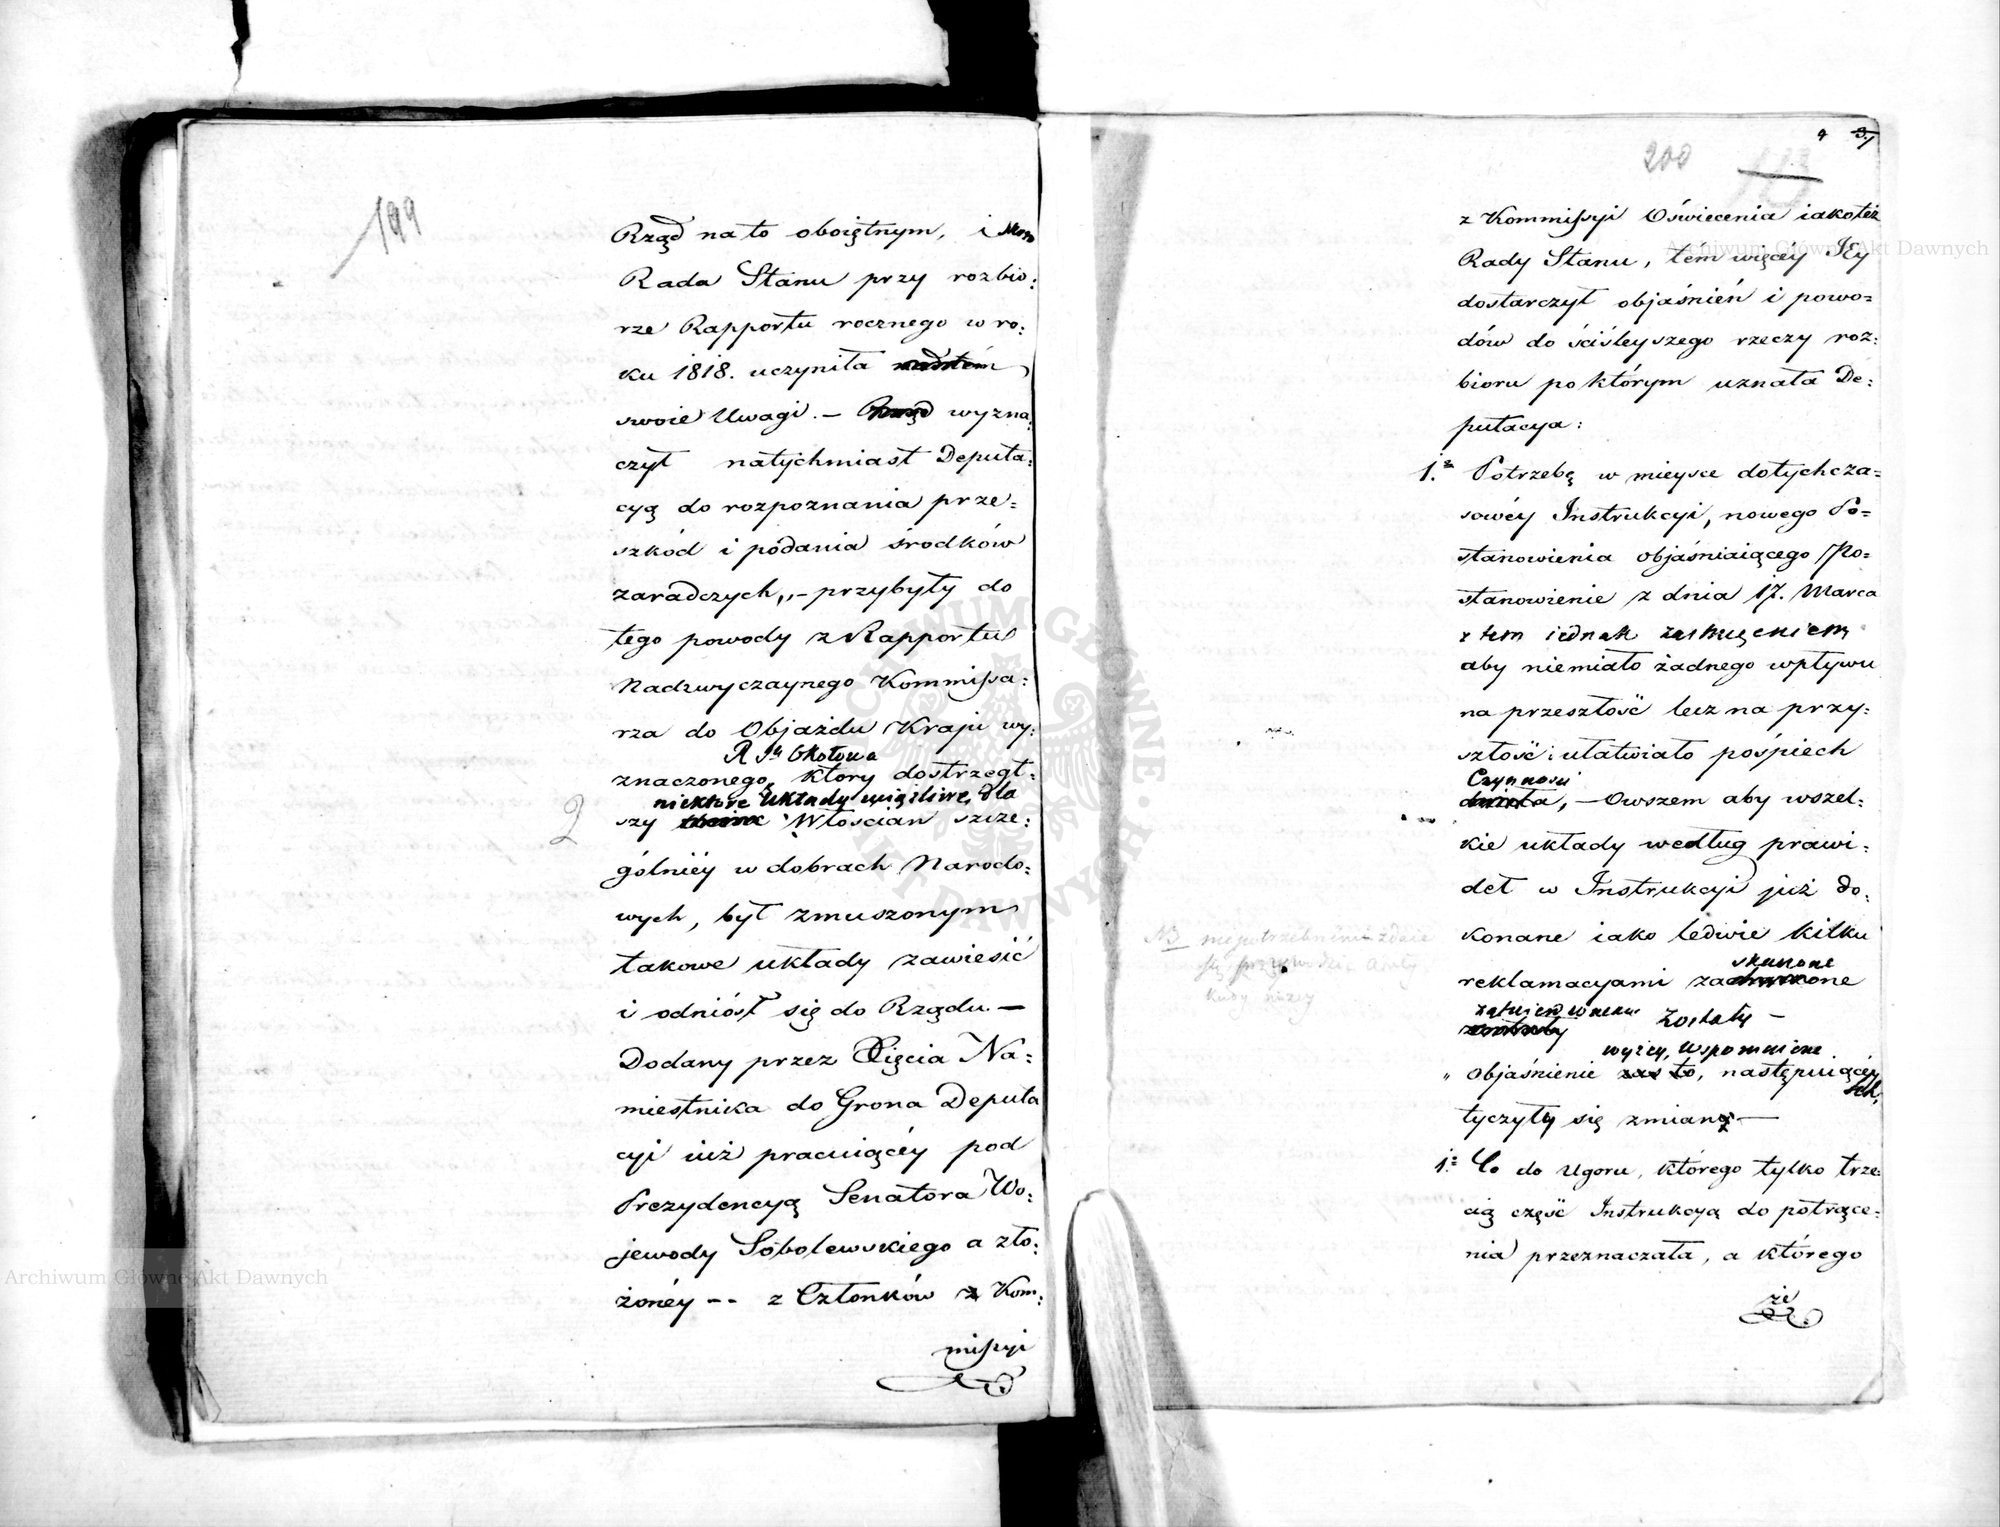 199
Rząd na to oboiętnym, i
Rada Stanu przy rozbio:
rze Rapportu rocznego w ro:
ku 1818. uczyniła
swoie Uwagi. — wyzna:
czył natychmiast Deputa:
cyą do rozpoznania prze=
szkód i podania środków
zaradczych, – przybyły do
tego powody z Rapportu
Nadzwyczaynego Kommissa:
rza do Objazdu Kraju wy:
R Sta Okołowa
znaczonego, który dostrzegł:
niektóre układy uciążliwe, dla
szy Włościan szcze:
2
gólniéy w dobrach Narodo:
wych, był zmuszonym
takowe układy zawiesić
i odniósł się do Rządu. —
Dodany przez Xięcia Na=
miestnika do Grona Deputa
cyi iuż pracuiącéy pod
Prezydencyą Senatora Wo:
jewody Sobolewskiego a zło:
żonéy -- z Członków z Kom:
missyi
4 3.
200
z Kommissyi Oświecenia iakoteż
Rady Stanu, tém więcéy Jéy
dostarczył objaśnień i powo=
dów do ściśleyszego rzeczy roz:
bioru po którym uznała De:
putacya:
1. Potrzebę w mieysce dotychcza=
sowéy Instrukcyi, nowego Po=
stanowienia objaśniaiącego Po=
stanowienie z dnia 17. Marca
z tem iednak zastrzeżeniem
aby niemiało żadnego wpływu
na przeszłość lecz na przy=
szłość i ułatwiało pośpiech
Czynności
dzieła, — Owszem aby wszel=
kie układy według prawi:
deł w Instrukcyi już do:
konane iako ledwie kilku
skarżone
reklamacyami
zatwierdzone Zostały —
wyżey, Wspomnione
" Objaśnienie zaś to, następuiącéy
ich,
tyczyły się zmiany —
1. Co do Ugoru, którego tylko trze:
cią część Instrukcya do potrące=
nia przeznaczała, a którego
że
NB niepotrzebnemi zdaie
się
kudy niżey
Archiwum Główne Akt Dawnych
Archiwum Główne Akt Dawnych
ARCHIWUM GŁÓWNE AKT DAWNYCH